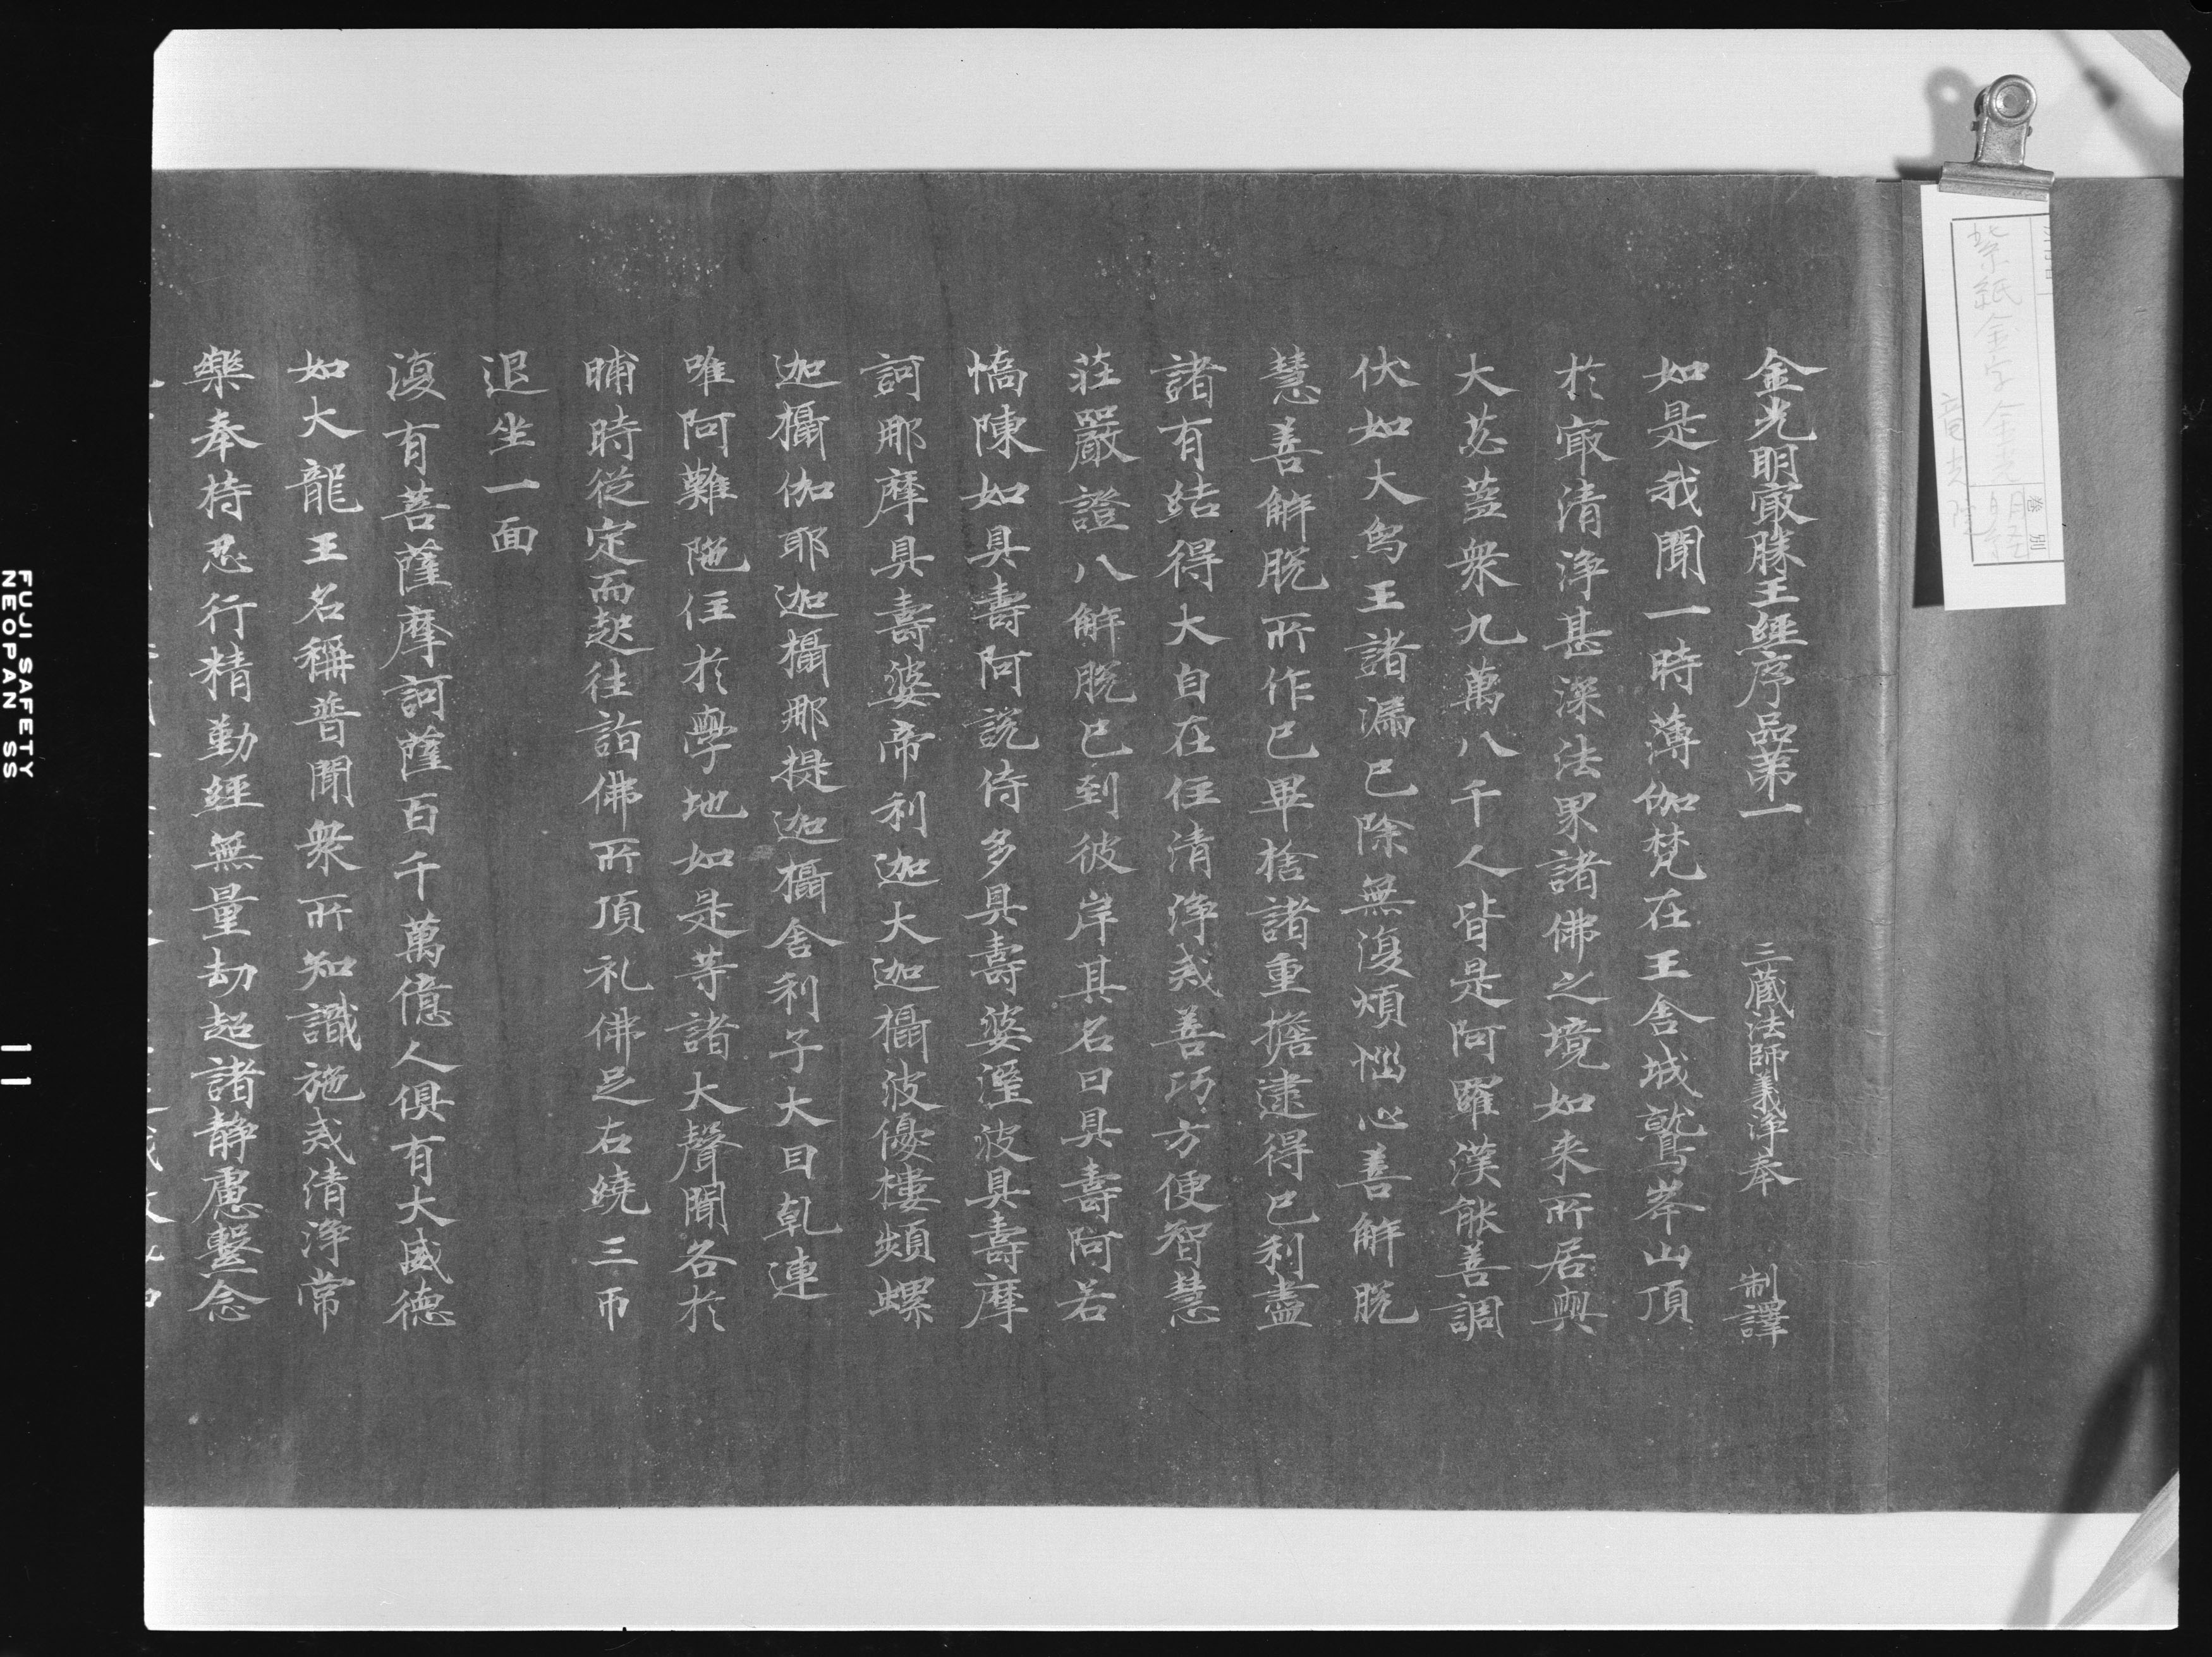 金光明㝡勝王經序品第一 三蔵法師義浄奉 制譯
如是我聞一時薄伽梵在王舍城鷲峯山頂
於㝡清淨甚深法界諸佛之境如来所居與
大苾蒭衆九萬八千人皆是阿羅漢能善調
伏如大烏王諸漏已除無復煩惱心善解脱
慧善解脱所作已畢捨諸重擔逮得已利盡
諸有結得大自在住清淨戒善巧方便智慧
莊嚴證八解脱已到彼岸其名曰具壽阿若
憍陳如具壽阿説侍多具壽婆溼波具壽摩
訶那摩具壽婆帝利迦大迦攝波優樓頻螺
迦攝伽耶迦攝那提迦攝舍利子大目乹連
唯阿難陁住於學地如是等諸大聲聞各於
晡時從定而起往詣佛所頂礼佛足右繞三帀
退坐一面
復有菩薩摩訶薩百千萬億人俱有大威德
如大龍王名稱普聞衆所知識施戒清淨常
樂奉持忍行精勤經無量劫超諸静慮繫念
紫紙金字金光明経
竜光院
巻別
FUJI SAFETY
NEOPAN SS
11